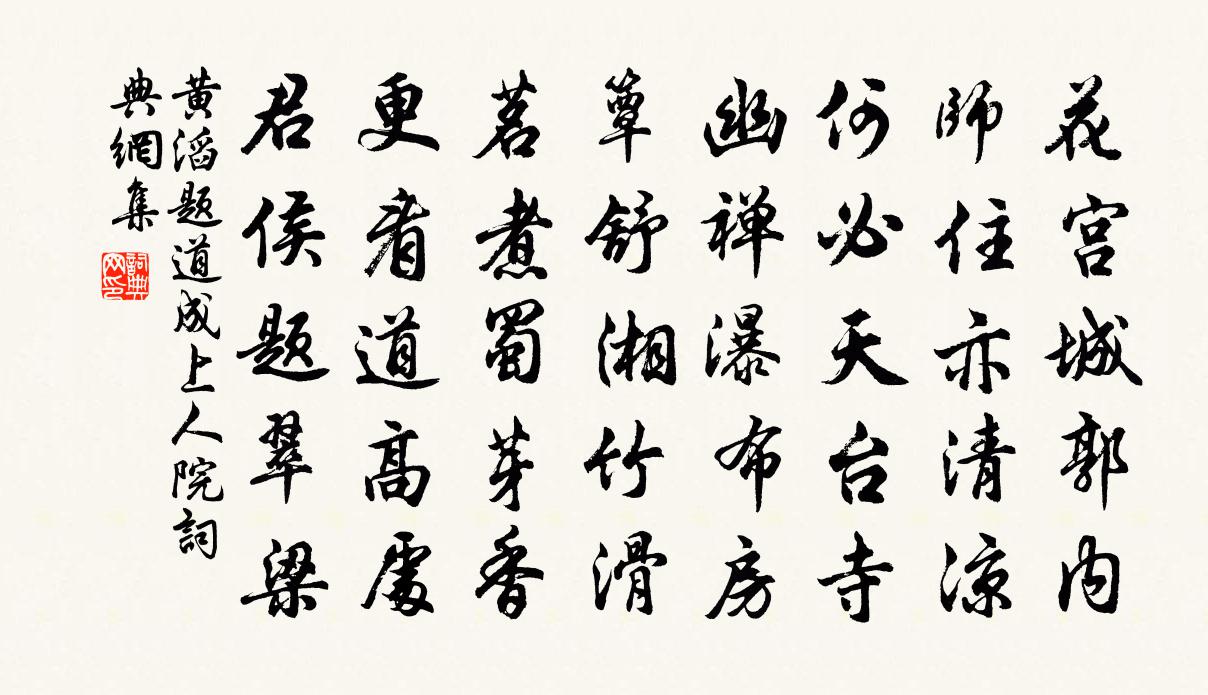 花宫城郭内
師住亦清涼
何必天台寺
幽禅瀑布房
簟舒湘竹滑
茗煮蜀芽香
更看道高處
君侯题翠梁
黄滔题道成上人院詞
典網集
詞典
网印